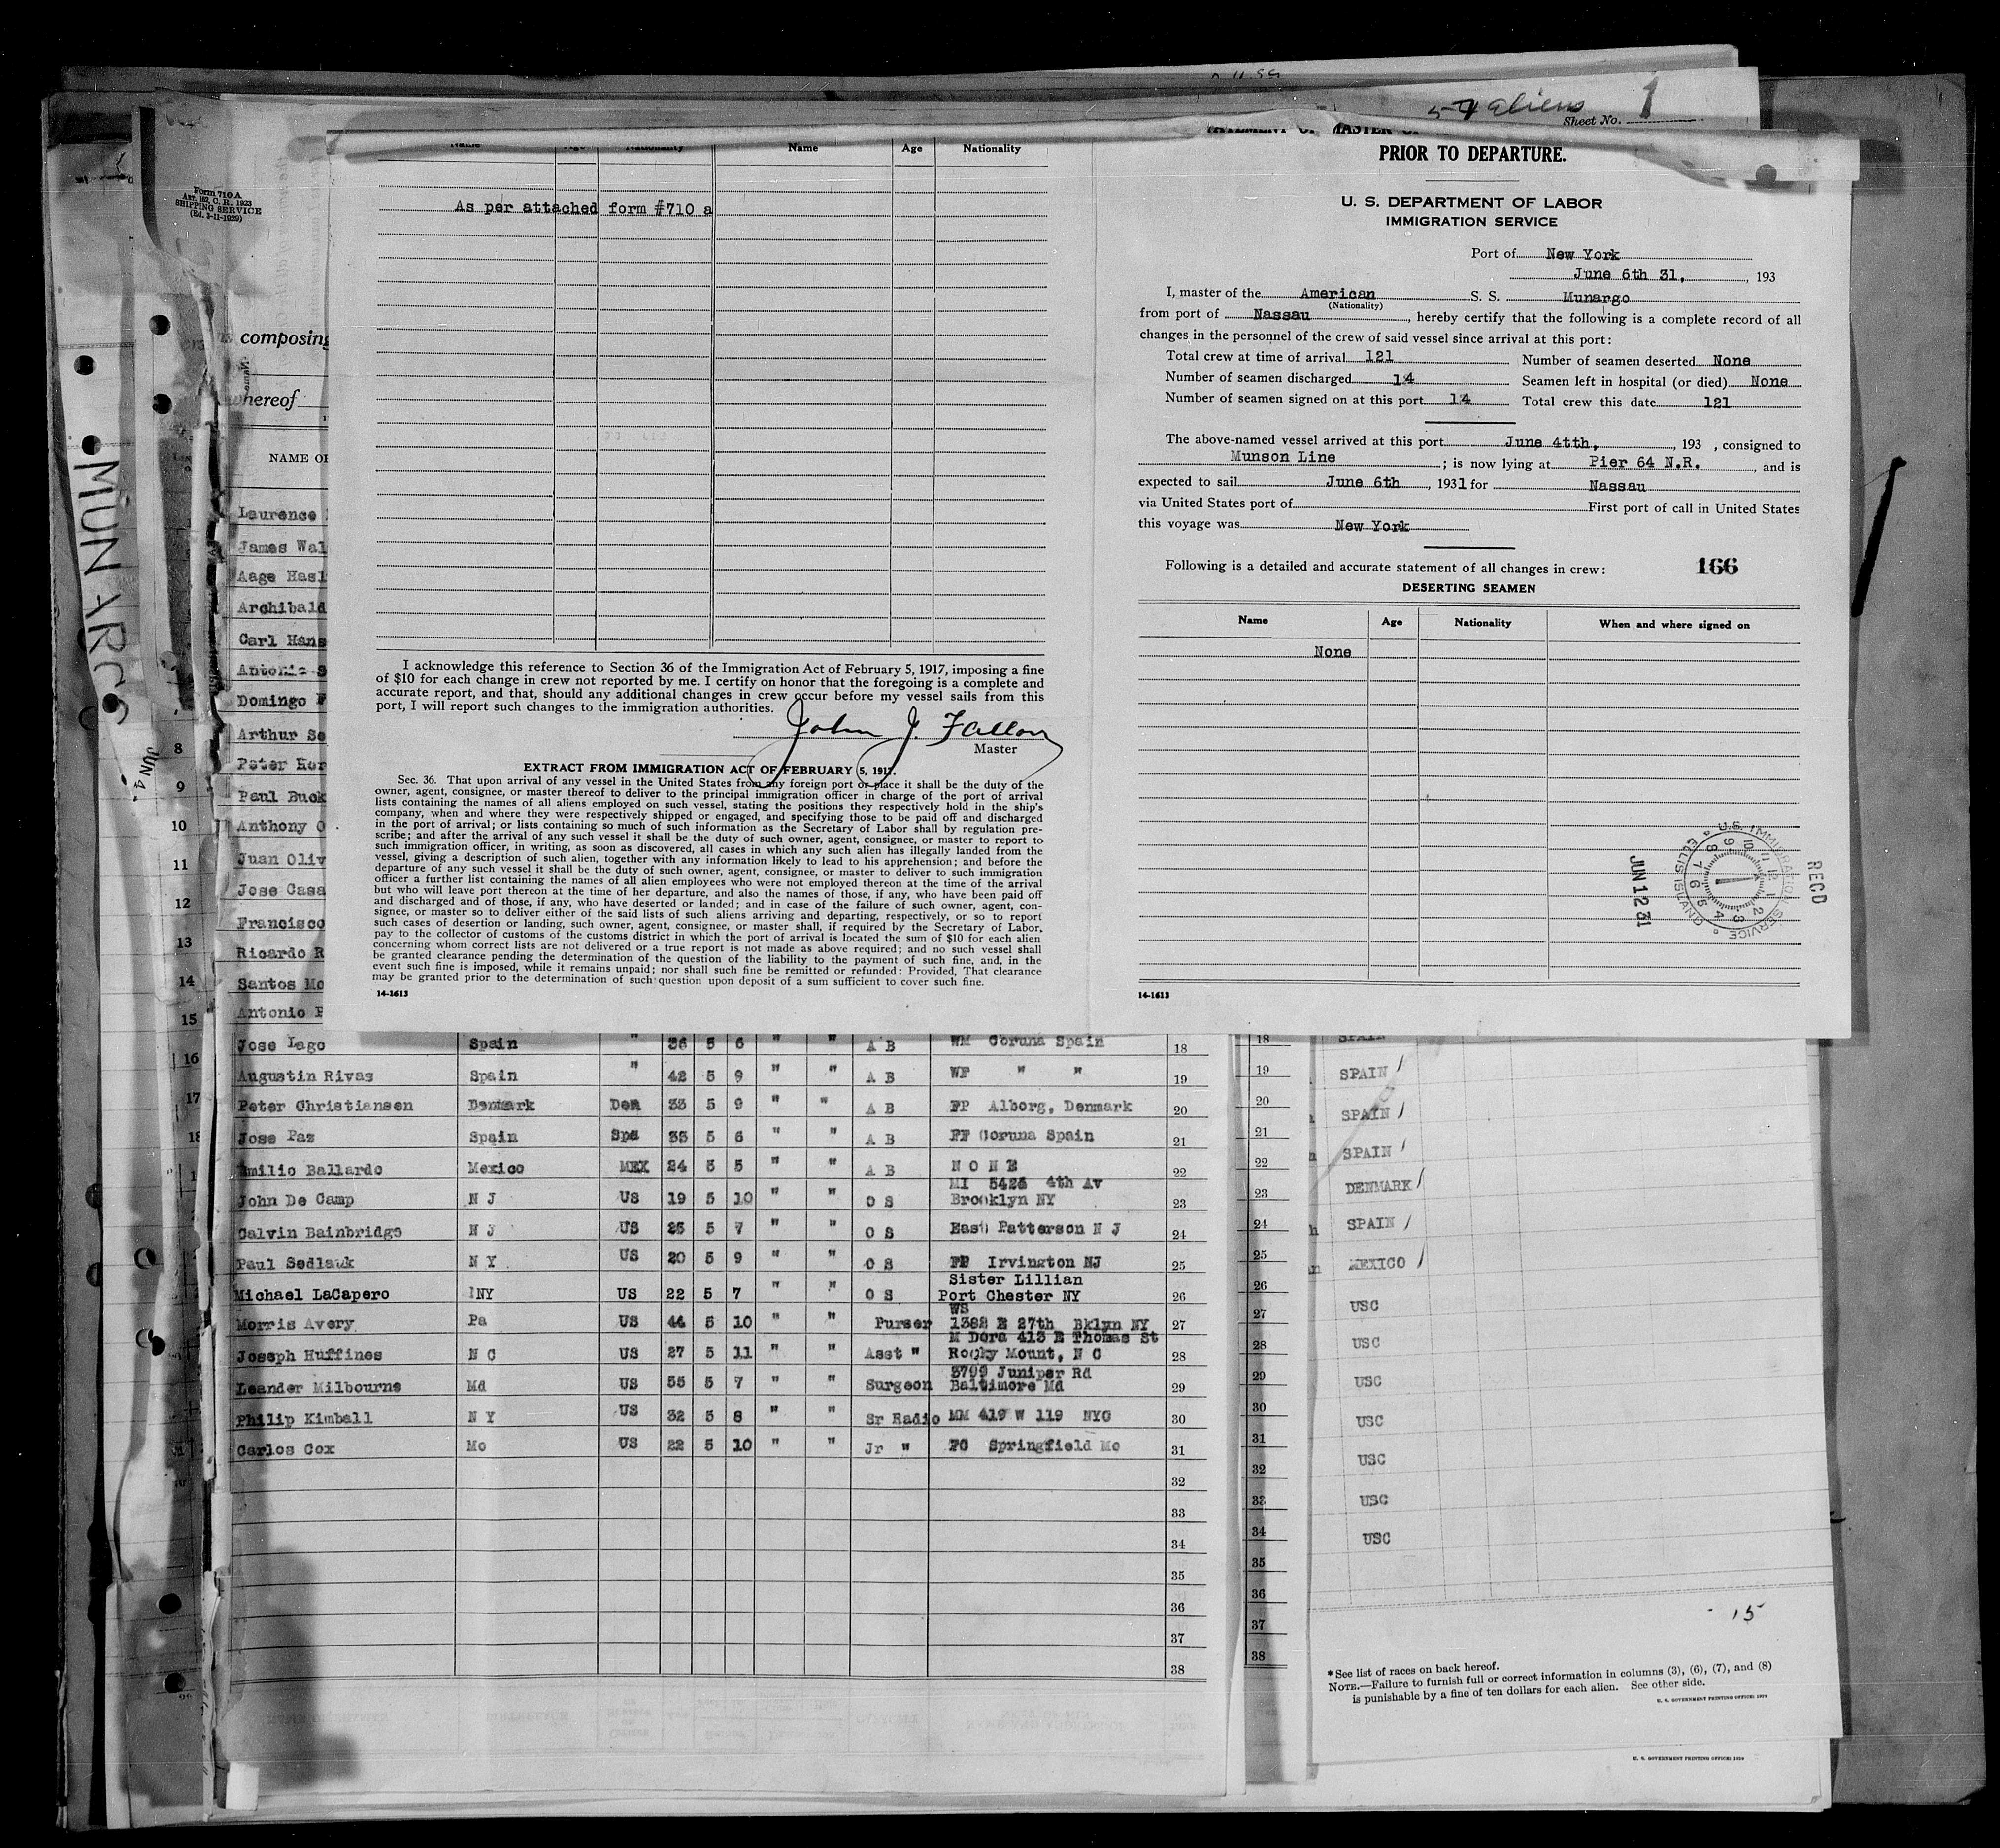 5 aliens 1
Sheet No.
Form 710 A
Art. 162, C. R. 1923
SHIPPING SERVICE
(Ed. 3-11-1929)
MUNARGO
JUN 4
composing
whereof
NAME OF
Name Age Nationality Name Age Nationality
As per attached form #710 a
I acknowledge this reference to Section 36 of the Immigration Act of February 5, 1917, imposing a fine
of $10 for each change in crew not reported by me. I certify on honor that the foregoing is a complete and
accurate report, and that, should any additional changes in crew occur before my vessel sails from this
port, I will report such changes to the immigration authorities.
John J. Fallon
Master
EXTRACT FROM IMMIGRATION ACT OF FEBRUARY 5, 1917.
Sec. 36. That upon arrival of any vessel in the United States from any foreign port or place it shall be the duty of the
owner, agent, consignee, or master thereof to deliver to the principal immigration officer in charge of the port of arrival
lists containing the names of all aliens employed on such vessel, stating the positions they respectively hold in the ship's
company, when and where they were respectively shipped or engaged, and specifying those to be paid off and discharged
in the port of arrival; or lists containing so much of such information as the Secretary of Labor shall by regulation pre-
scribe; and after the arrival of any such vessel it shall be the duty of such owner, agent, consignee, or master to report to
such immigration officer, in writing, as soon as discovered, all cases in which any such alien has illegally landed from the
vessel, giving a description of such alien, together with any information likely to lead to his apprehension; and before the
departure of any such vessel it shall be the duty of such owner, agent, consignee, or master to deliver to such immigration
officer a further list containing the names of all alien employees who were not employed thereon at the time of the arrival
but who will leave port thereon at the time of her departure, and also the names of those, if any, who have been paid off
and discharged and of those, if any, who have deserted or landed; and in case of the failure of such owner, agent, con-
signee, or master so to deliver either of the said lists of such aliens arriving and departing, respectively, or so to report
such cases of desertion or landing, such owner, agent, consignee, or master shall, if required by the Secretary of Labor,
pay to the collector of customs of the customs district in which the port of arrival is located the sum of $10 for each alien
concerning whom correct lists are not delivered or a true report is not made as above required; and no such vessel shall
be granted clearance pending the determination of the question of the liability to the payment of such fine, and, in the
event such fine is imposed, while it remains unpaid; nor shall such fine be remitted or refunded: Provided, That clearance
may be granted prior to the determination of such question upon deposit of a sum sufficient to cover such fine.
14-1613
PRIOR TO DEPARTURE.
U. S. DEPARTMENT OF LABOR
IMMIGRATION SERVICE
Port of New York
June 6th 31, , 193
I, master of the American S. S. Munargo
(Nationality)
from port of Nassau , hereby certify that the following is a complete record of all
changes in the personnel of the crew of said vessel since arrival at this port:
Total crew at time of arrival 121 Number of seamen deserted None
Number of seamen discharged 14 Seamen left in hospital (or died) None
Number of seamen signed on at this port 14 Total crew this date 121
The above-named vessel arrived at this port June 4tth, , 193 , consigned to
Munson Line ; is now lying at Pier 64 N.R. , and is
expected to sail June 6th , 1931 for Nassau
via United States port of First port of call in United States
this voyage was New York
Following is a detailed and accurate statement of all changes in crew: 166
DESERTING SEAMEN
Name Age Nationality When and where signed on
None
RECD
U.S. IMMIGRATION SERVICE
ELLIS ISLAND
JUN 12 31
14-1613
Laurence
James Wal
Aage Hasl
Archibald
Carl Hans
Antonio S
Domingo F
Arthur Se
8
Peter Hor
9
Paul Buck
10
Anthony O
11
Juan Oliv
Jose Casa
12
Francisco
13
Ricardo R
14
Santos Mo
15
Antonio P
Jose Lago Spain " 36 5 6 " " A B WM Coruna Spain 18
Augustin Rivas Spain " 42 5 9 " " A B WF " " 19
Peter Christiansen Denmark Den 33 5 9 " " A B FP Alborg, Denmark 20
Jose Paz Spain Spa 33 5 6 " " A B FF Coruna Spain 21
Emilio Ballardo Mexico MEX 24 5 5 " " A B N O N E 22
MI 5426 4th Av
John De Camp N J US 19 5 10 " " O S Brooklyn NY 23
Calvin Bainbridge N J US 23 5 7 " " O S East Patterson N J 24
Paul Sedlauk N Y US 20 5 9 " " O S FP Irvington NJ 25
Sister Lillian
Michael LaCapero NY US 22 5 7 " " O S Port Chester NY 26
WS
Morris Avery Pa US 44 5 10 " " Purser 1382 E 27th Bklyn NY 27
M Dora 413 E Thomas St
Joseph Huffines N C US 27 5 11 " " Asst " Rocky Mount, N C 28
3799 Juniper Rd
Leander Milbourne Md US 55 5 7 " " Surgeon Baltimore Md 29
Philip Kimball N Y US 32 5 8 " " Sr Radio MM 419 W 119 NYC 30
Carlos Cox Mo US 22 5 10 " " Jr " FC Springfield Mo 31
32
33
34
35
36
37
38
18
19
20
21
22
23
24
25
26
27
28
29
30
31
32
33
34
35
36
37
38
SPAIN
SPAIN
SPAIN
SPAIN
DENMARK
SPAIN
MEXICO
USC
USC
USC
USC
USC
USC
USC
15
* See list of races on back hereof.
NOTE.—Failure to furnish full or correct information in columns (3), (6), (7), and (8)
is punishable by a fine of ten dollars for each alien. See other side.
U. S. GOVERNMENT PRINTING OFFICE: 1929
U. S. GOVERNMENT PRINTING OFFICE: 1929